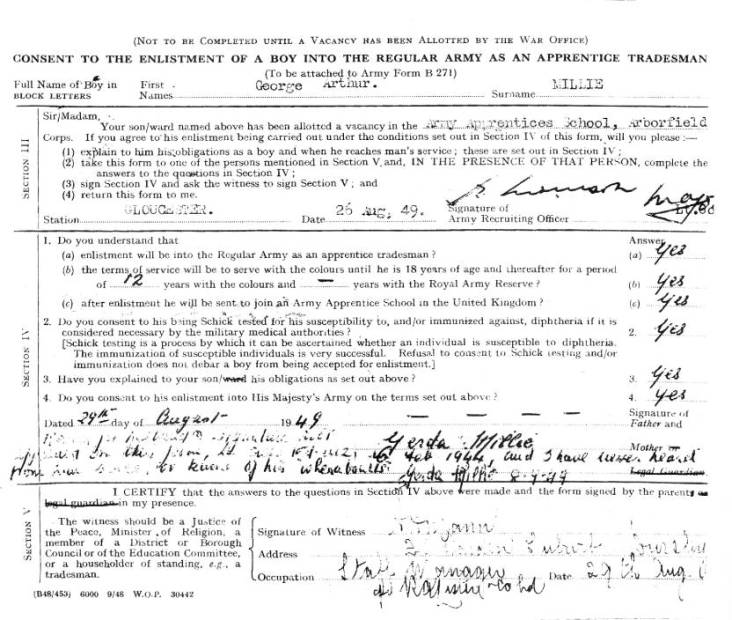 (NOT TO BE COMPLETED UNTIL A VACANCY HAS BEEN ALLOTTED BY THE WAR OFFICE)
CONSENT TO THE ENLISTMENT OF A BOY INTO THE REGULAR ARMY AS AN APPRENTICE TRADESMAN
(To be attached to Army Form B 271)
Full Name of Boy in BLOCK LETTERS First Names George Arthur. Surname MILLIE
SECTION III
Sir/Madam,
Your son/ward named above has been allotted a vacancy in the Army Apprentices School, Arborfield
Corps. If you agree to his enlistment being carried out under the conditions set out in Section IV of this form, will you please :—
(1) explain to him his obligations as a boy and when he reaches man's service; these are set out in Section IV ;
(2) take this form to one of the persons mentioned in Section V, and, IN THE PRESENCE OF THAT PERSON, complete the
answers to the questions in Section IV ;
(3) sign Section IV and ask the witness to sign Section V ; and
(4) return this form to me.
Station GLOUCESTER. Date 26 Aug, 49. Signature of Army Recruiting Officer Major
SECTION IV
1. Do you understand that Answer
(a) enlistment will be into the Regular Army as an apprentice tradesman ? (a) Yes
(b) the terms of service will be to serve with the colours until he is 18 years of age and thereafter for a period
of 12 years with the colours and — years with the Royal Army Reserve ? (b) Yes
(c) after enlistment he will be sent to join an Army Apprentice School in the United Kingdom ? (c) Yes
2. Do you consent to his being Schick tested for his susceptibility to, and/or immunized against, diphtheria if it is
considered necessary by the military medical authorities ? 2. Yes
[Schick testing is a process by which it can be ascertained whether an individual is susceptible to diphtheria.
The immunization of susceptible individuals is very successful. Refusal to consent to Schick testing and/or
immunization does not debar a boy from being accepted for enlistment.]
3. Have you explained to your son/ward his obligations as set out above ? 3. Yes
4. Do you consent to his enlistment into His Majesty's Army on the terms set out above ? 4. Yes
Dated 29th day of August 1949 — — — — Signature of
Father and
signature not Gerda Millie Mother
on this form, Feb 1944, and I have never heard
from him since, or know of his whereabouts. Gerda Millie Legal Guardian
SECTION V
I CERTIFY that the answers to the questions in Section IV above were made and the form signed by the parents or
legal guardian in my presence.
The witness should be a Justice of
the Peace, Minister of Religion, a
member of a District or Borough
Council or of the Education Committee,
or a householder of standing, e.g., a
tradesman.
Signature of Witness
Address
Occupation Manager Date 29th Aug
(B48/453) 6000 9/48 W.O.P. 30442